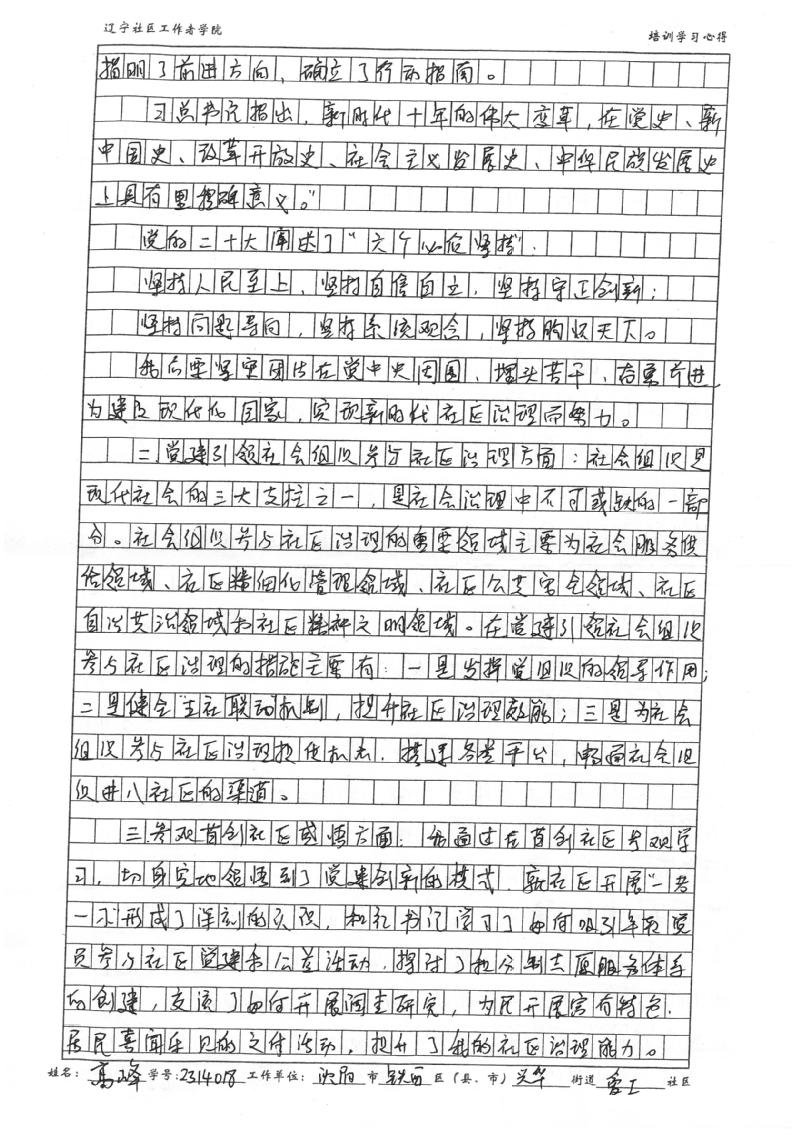 辽宁社区工作者学院
培训学习心得
指明了前进方向，确立了行动指南。
习总书记指出，新时代十年的伟大变革，在党史、新
中国史、改革开放史、社会主义发展史、中华民族发展史
上具有里程碑意义。”
党的二十大阐述了“六个必须坚持”：
坚持人民至上、坚持自信自立，坚持守正创新；
坚持问题导向，坚持系统观念，坚持胸怀天下。
我们要坚牢团结在党中央周围、埋头苦干、奋勇前进
为建设现代化国家，实现新时代社区治理而努力。
二、党建引领社会组织参与社区治理方面：社会组织是
现代社会的三大支柱之一，是社会治理中不可或缺的一部
分。社会组织参与社区治理的重要领域主要为社会服务供
给领域、社区精细化管理领域、社区公共安全领域、社区
自治共治领域和社区精神文明领域。在党建引领社会组织
参与社区治理的措施主要有：一是发挥党组织的领导作用；
二是健全“三社联动”机制，提升社区治理效能；三是为社会
组织参与社区治理提供机会，搭建各类平台，畅通社会组
织进入社区的渠道。
三、参观首创社区感悟方面：我通过在首创社区参观学
习，切身实地领悟到了党建创新的模式，就社区开展“一老
一小”形成了深刻的认识，和孔书记学习了如何吸引年轻党
员参与社区党建和公益活动，探讨了积分制志愿服务体系
的创建，交流了如何开展调查研究，为民开展富有特色，
居民喜闻乐见的文体活动，提升了我的社区治理能力。
姓名：高峰 学号：2314018 工作单位：沈阳 市 铁西 区（县、市） 兴华 街道 社区